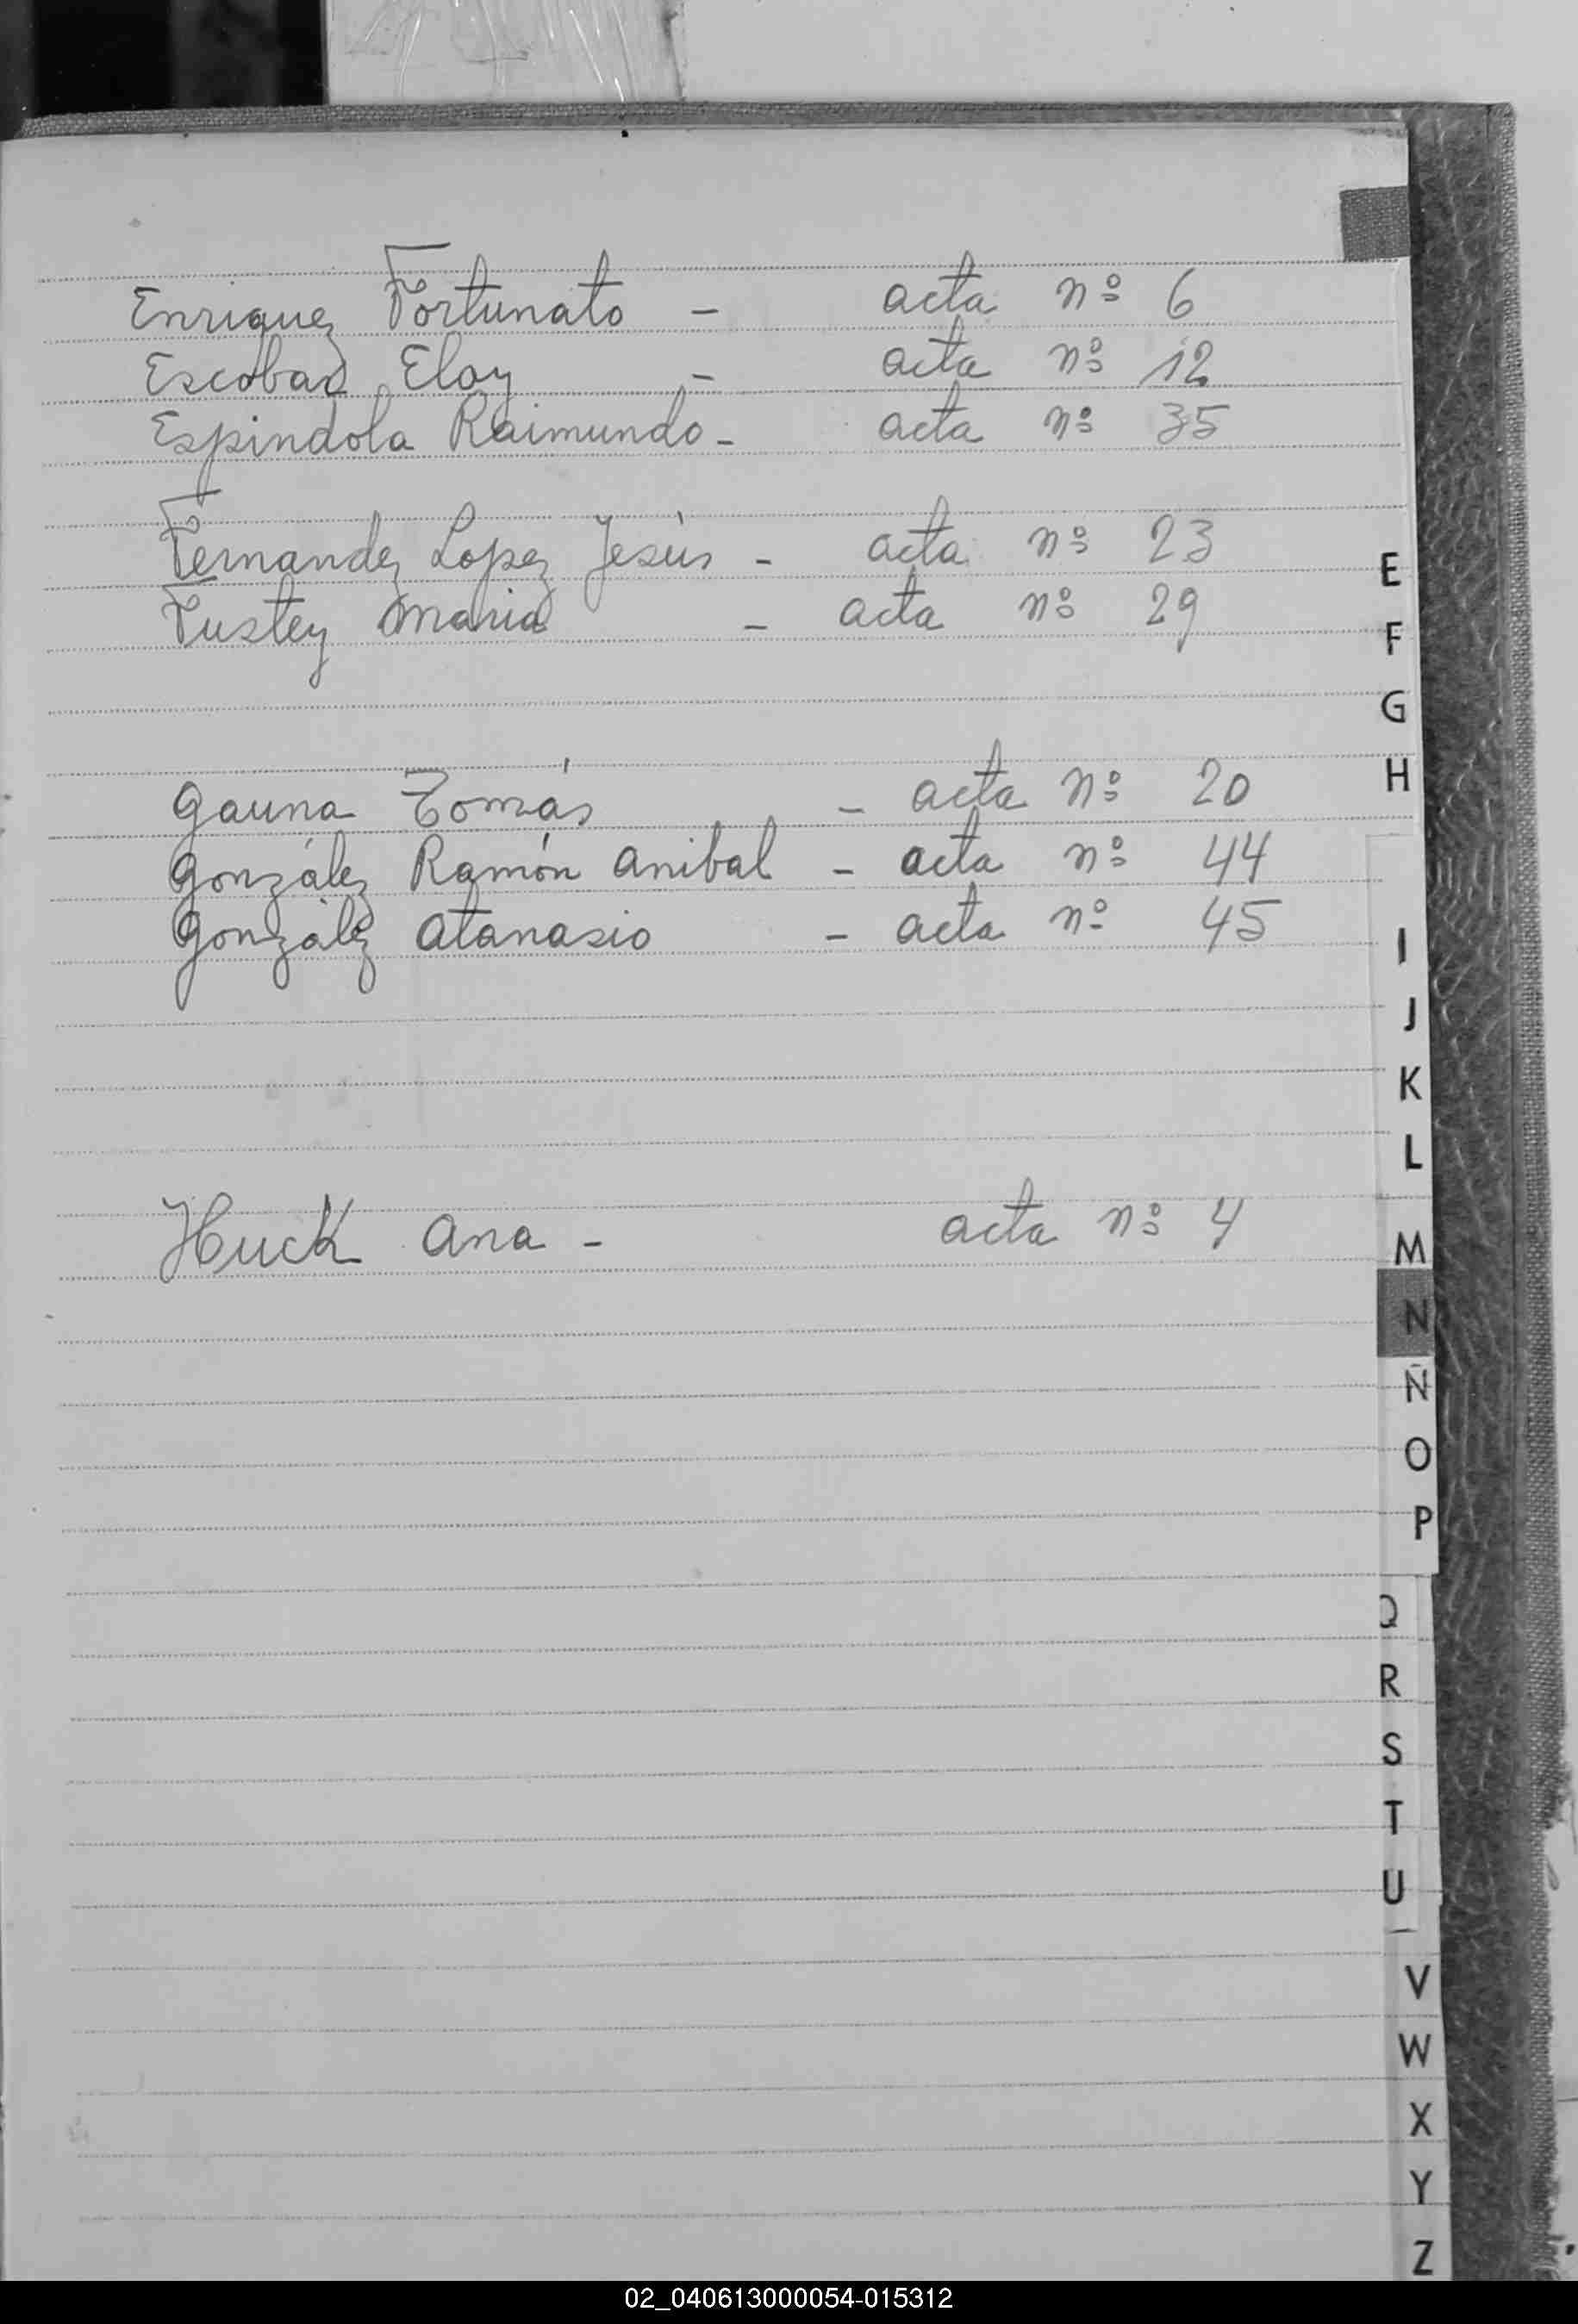 Enriquez Fortunato - acta nº 6
Escobar Eloy - acta nº 12
Espindola Raimundo - acta nº 35
Fernandez Lopez Jesús - acta nº 23
Fustey Maria - acta nº 29
Gauna Tomás - acta nº 20
González Ramón Anibal - acta nº 44
González Atanasio - acta nº 45
Huck Ana - acta nº 4
E
F
G
H
I
J
K
L
M
N
Ñ
O
P
Q
R
S
T
U
V
W
X
Y
Z
02_040613000054-015312